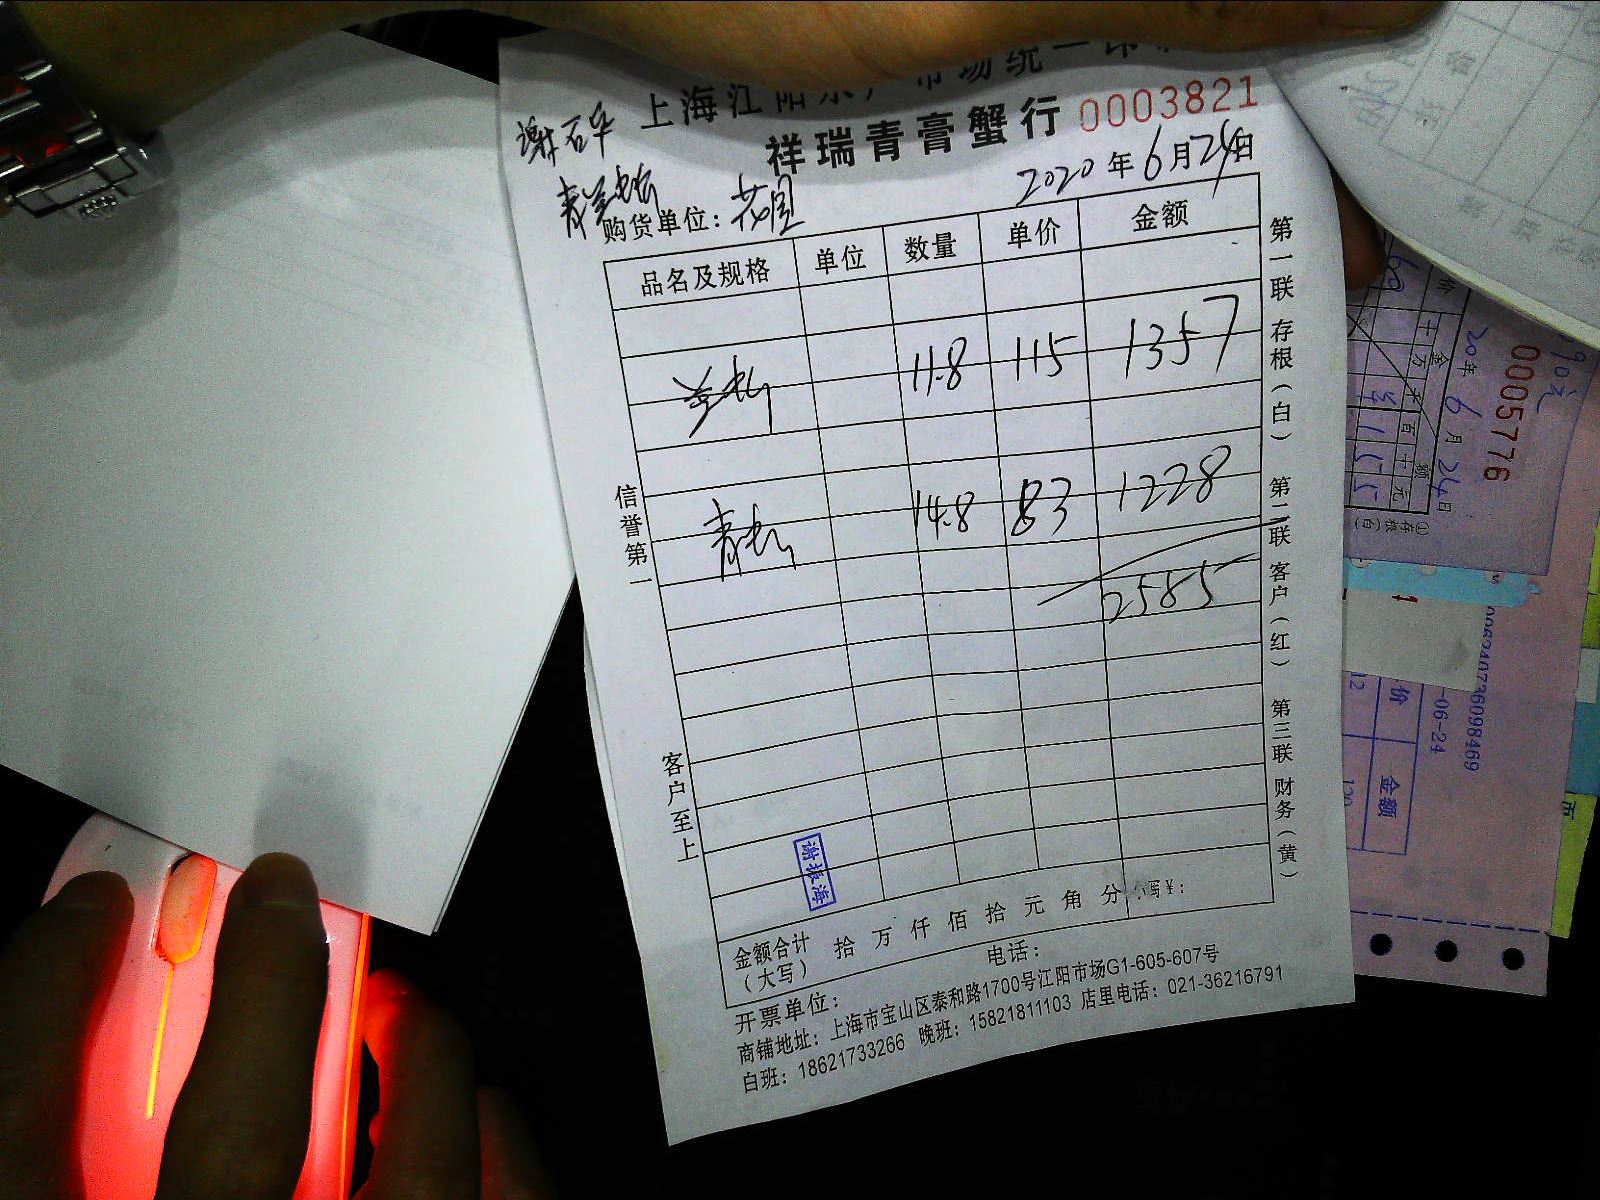 上海江阳水产市场统一
祥瑞青膏蟹行 0003821
2020年6月24日
购货单位：花园
品名及规格 单位 数量 单价 金额
11.8 115 1357
青 14.8 83 1228
2585
信誉第一
客户至上
第一联 存根（白） 第二联 客户（红） 第三联 财务（黄）
谢振海
金额合计（大写） 拾 万 仟 佰 拾 元 角 分 小写¥：
开票单位： 电话：
商铺地址：上海市宝山区泰和路1700号江阳市场G1-605-607号
白班：18621733266 晚班：15821811103 店里电话：021-36216791
0005776
20年6月24日
①存根（白）
-06-24
价 金额